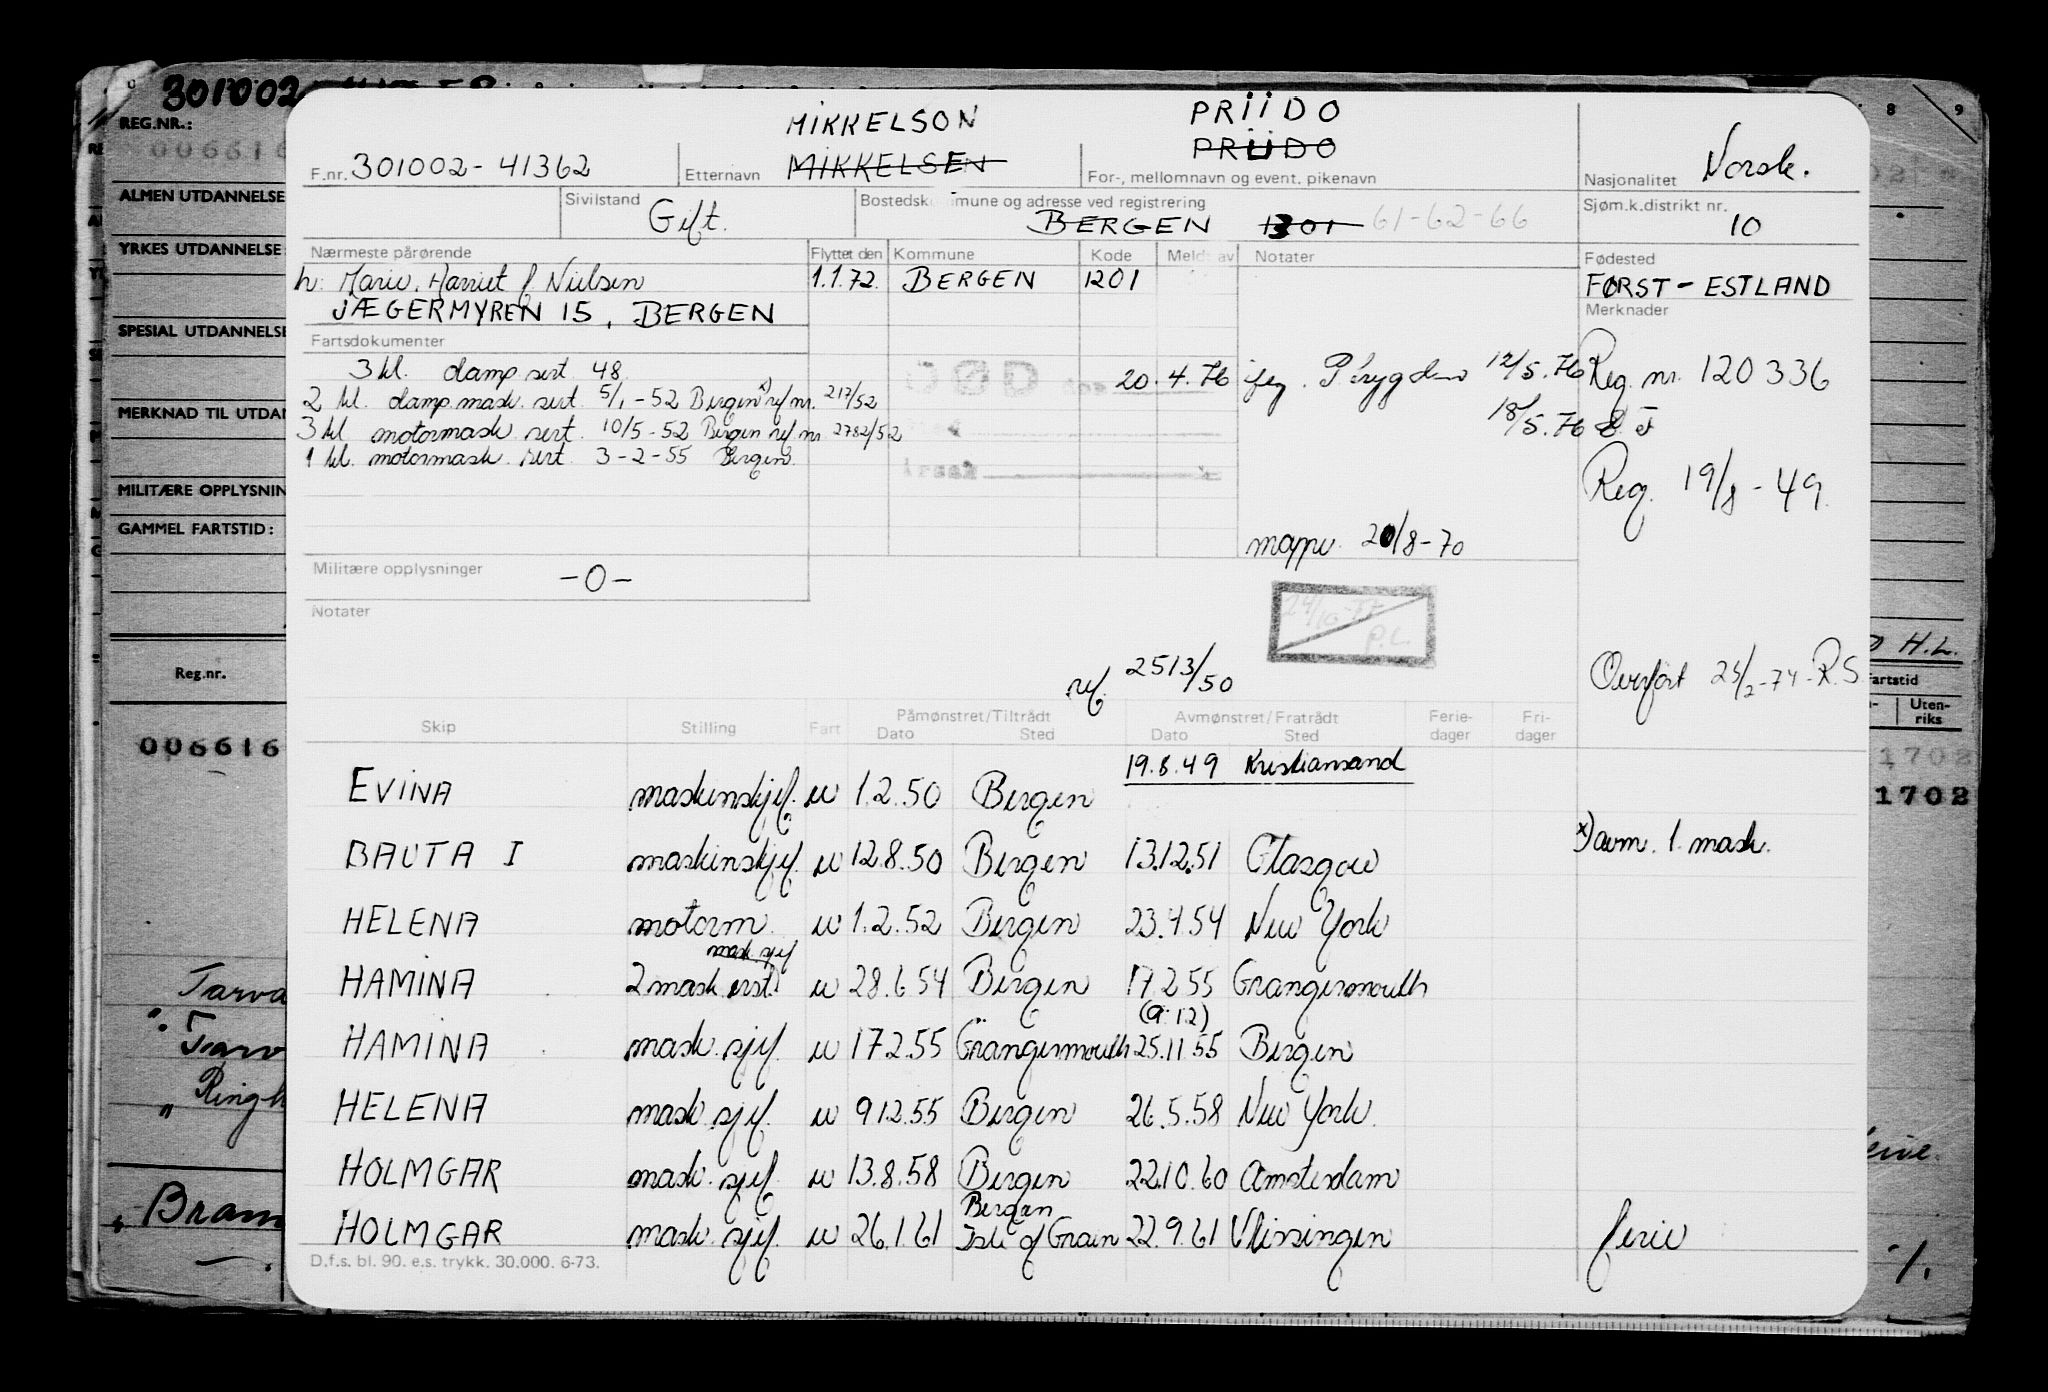 301002
REG.NR.:
006616
ALMEN UTDANNELSE
YRKES UTDANNELSE
SPESIAL UTDANNELSE
MERKNAD TIL UTDAN
MILITÆRE OPPLYSNIN
GAMMEL FARTSTID:
Reg.nr.
006616
Tarva
Ringh
Bram
8 9
H.L.
Fartstid
Uten-
riks
1702
1702
MIKKELSON PRIIDO
F.nr. 301002-41362 Etternavn MIKKELSEN PRIIDO
For-, mellomnavn og event. pikenavn
Nasjonalitet Norsk.
Sivilstand Gift.
Bostedskommune og adresse ved registrering
BERGEN 1301 61-62-66
Sjøm.k.distrikt nr. 10
Nærmeste pårørende Flyttet den Kommune Kode Meld. av Notater Fødested
h: Marie, Harriet f Nielsen 1.1.72. BERGEN 1201 FØRST - ESTLAND
JÆGERMYREN 15, BERGEN
Merknader
Fartsdokumenter
3 kl. damp sert 48
2 kl. damp.mask. sert. 5/1-52 Bergen ref nr. 217/52
3 kl motormask sert. 10/5-52 Bergen ref nr 2782/52
1 kl. motormask. sert. 3-2-55 Bergen.
DØD 20.4.76 12/5.76
18/5.76
Reg. nr. 120336
Reg. 19/8-49.
mappe. 20/8-70
Militære opplysninger -0-
Notater
P.L.
ref. 2513/50
Overført 25/2-74-R.S
Skip Stilling Fart Påmønstret/Tiltrådt Avmønstret/Fratrådt Ferie-dager Fri-dager
Dato Sted Dato Sted
19.8.49 Kristiansand
EVINA maskinsjef. u 1.2.50 Bergen
BAUTA I maskinsjef. u 12.8.50 Bergen 13.12.51 Glasgow x) avm. 1. mask.
HELENA motorm. u 1.2.52 Bergen 23.4.54 New York
mask.sjef
HAMINA 2 mask. u 28.6.54 Bergen 17.2.55 Grangermouth
(9.12)
HAMINA mask. sjef. u 17.2.55 Grangermouth 25.11.55 Bergen
HELENA mask. sjef. u 9.12.55 Bergen 26.5.58 New York.
HOLMGAR mask. sjef. u 13.8.58 Bergen 22.10.60 Amsterdam
Bergen
HOLMGAR mask. sjef. u 26.1.61 Isle of Grain 22.9.61 Vlissingen ferie
D.f.s. bl. 90. e.s. trykk. 30.000. 6-73.